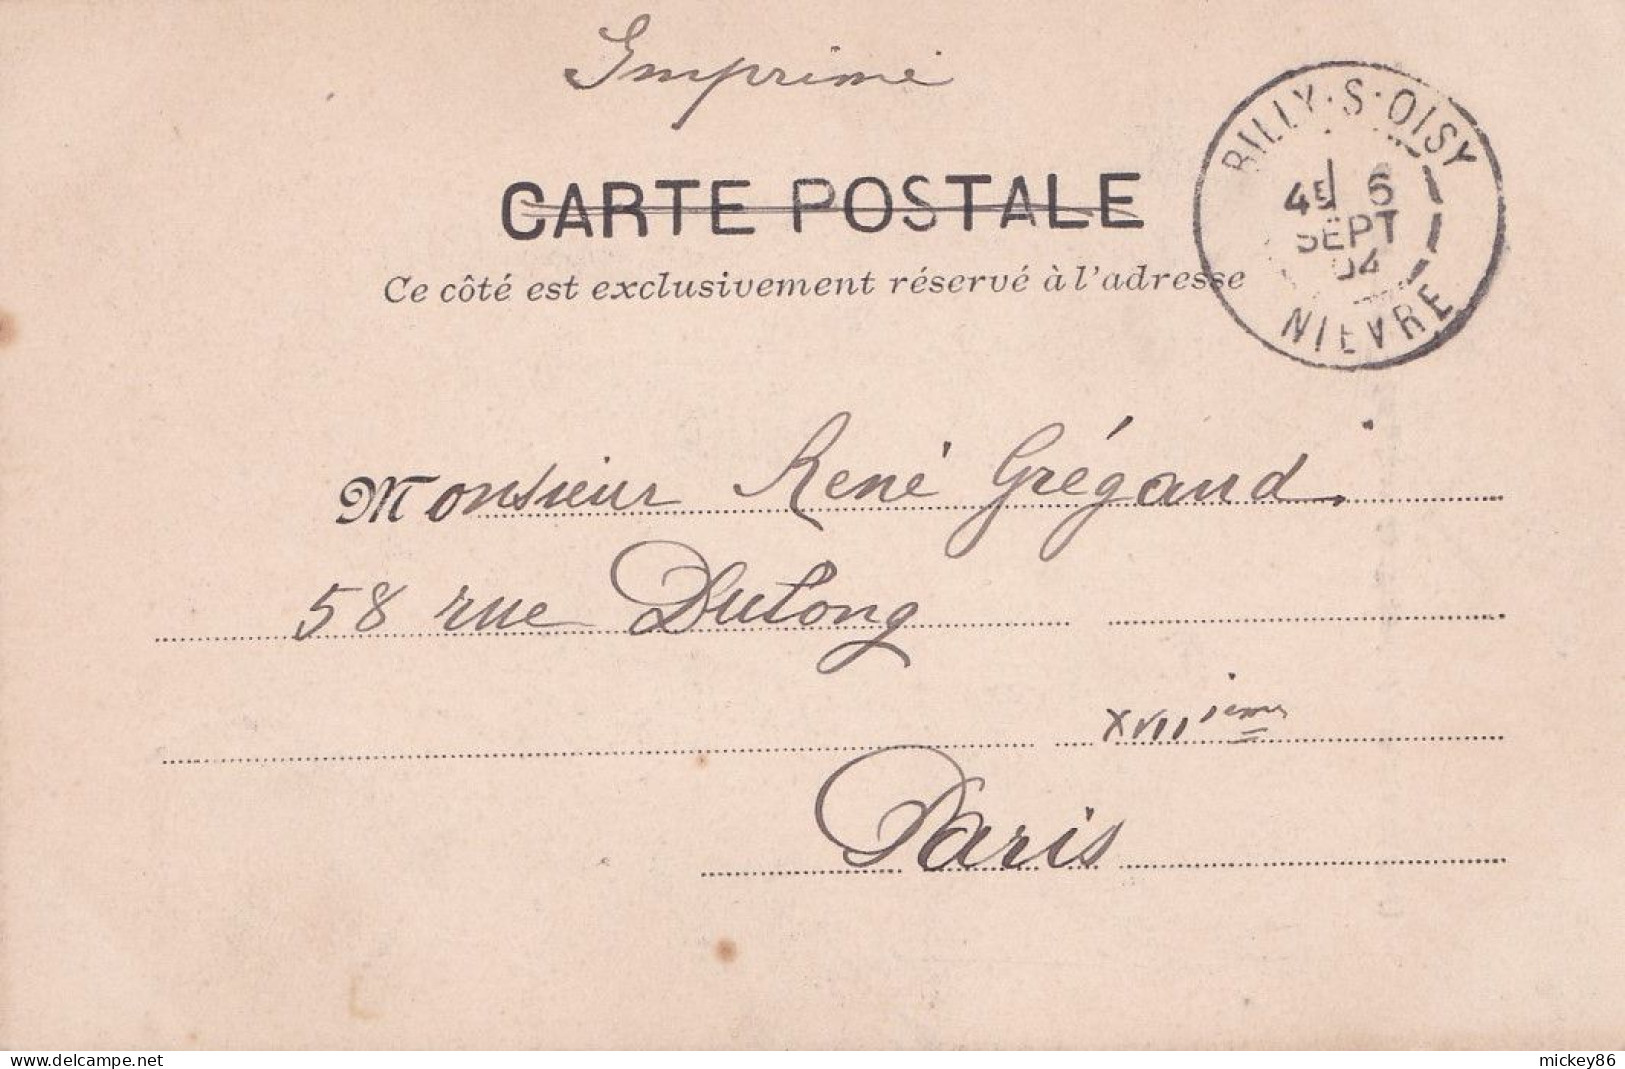 Imprimé
CARTE POSTALE
Ce côté est exclusivement réservé à l'adresse
BILLY·S·OISY
4E 6
SEPT
04
NIEVRE
Monsieur René Grégaud.
58 rue Dulong
XVIIième
Paris
delcampe.net
mickey86